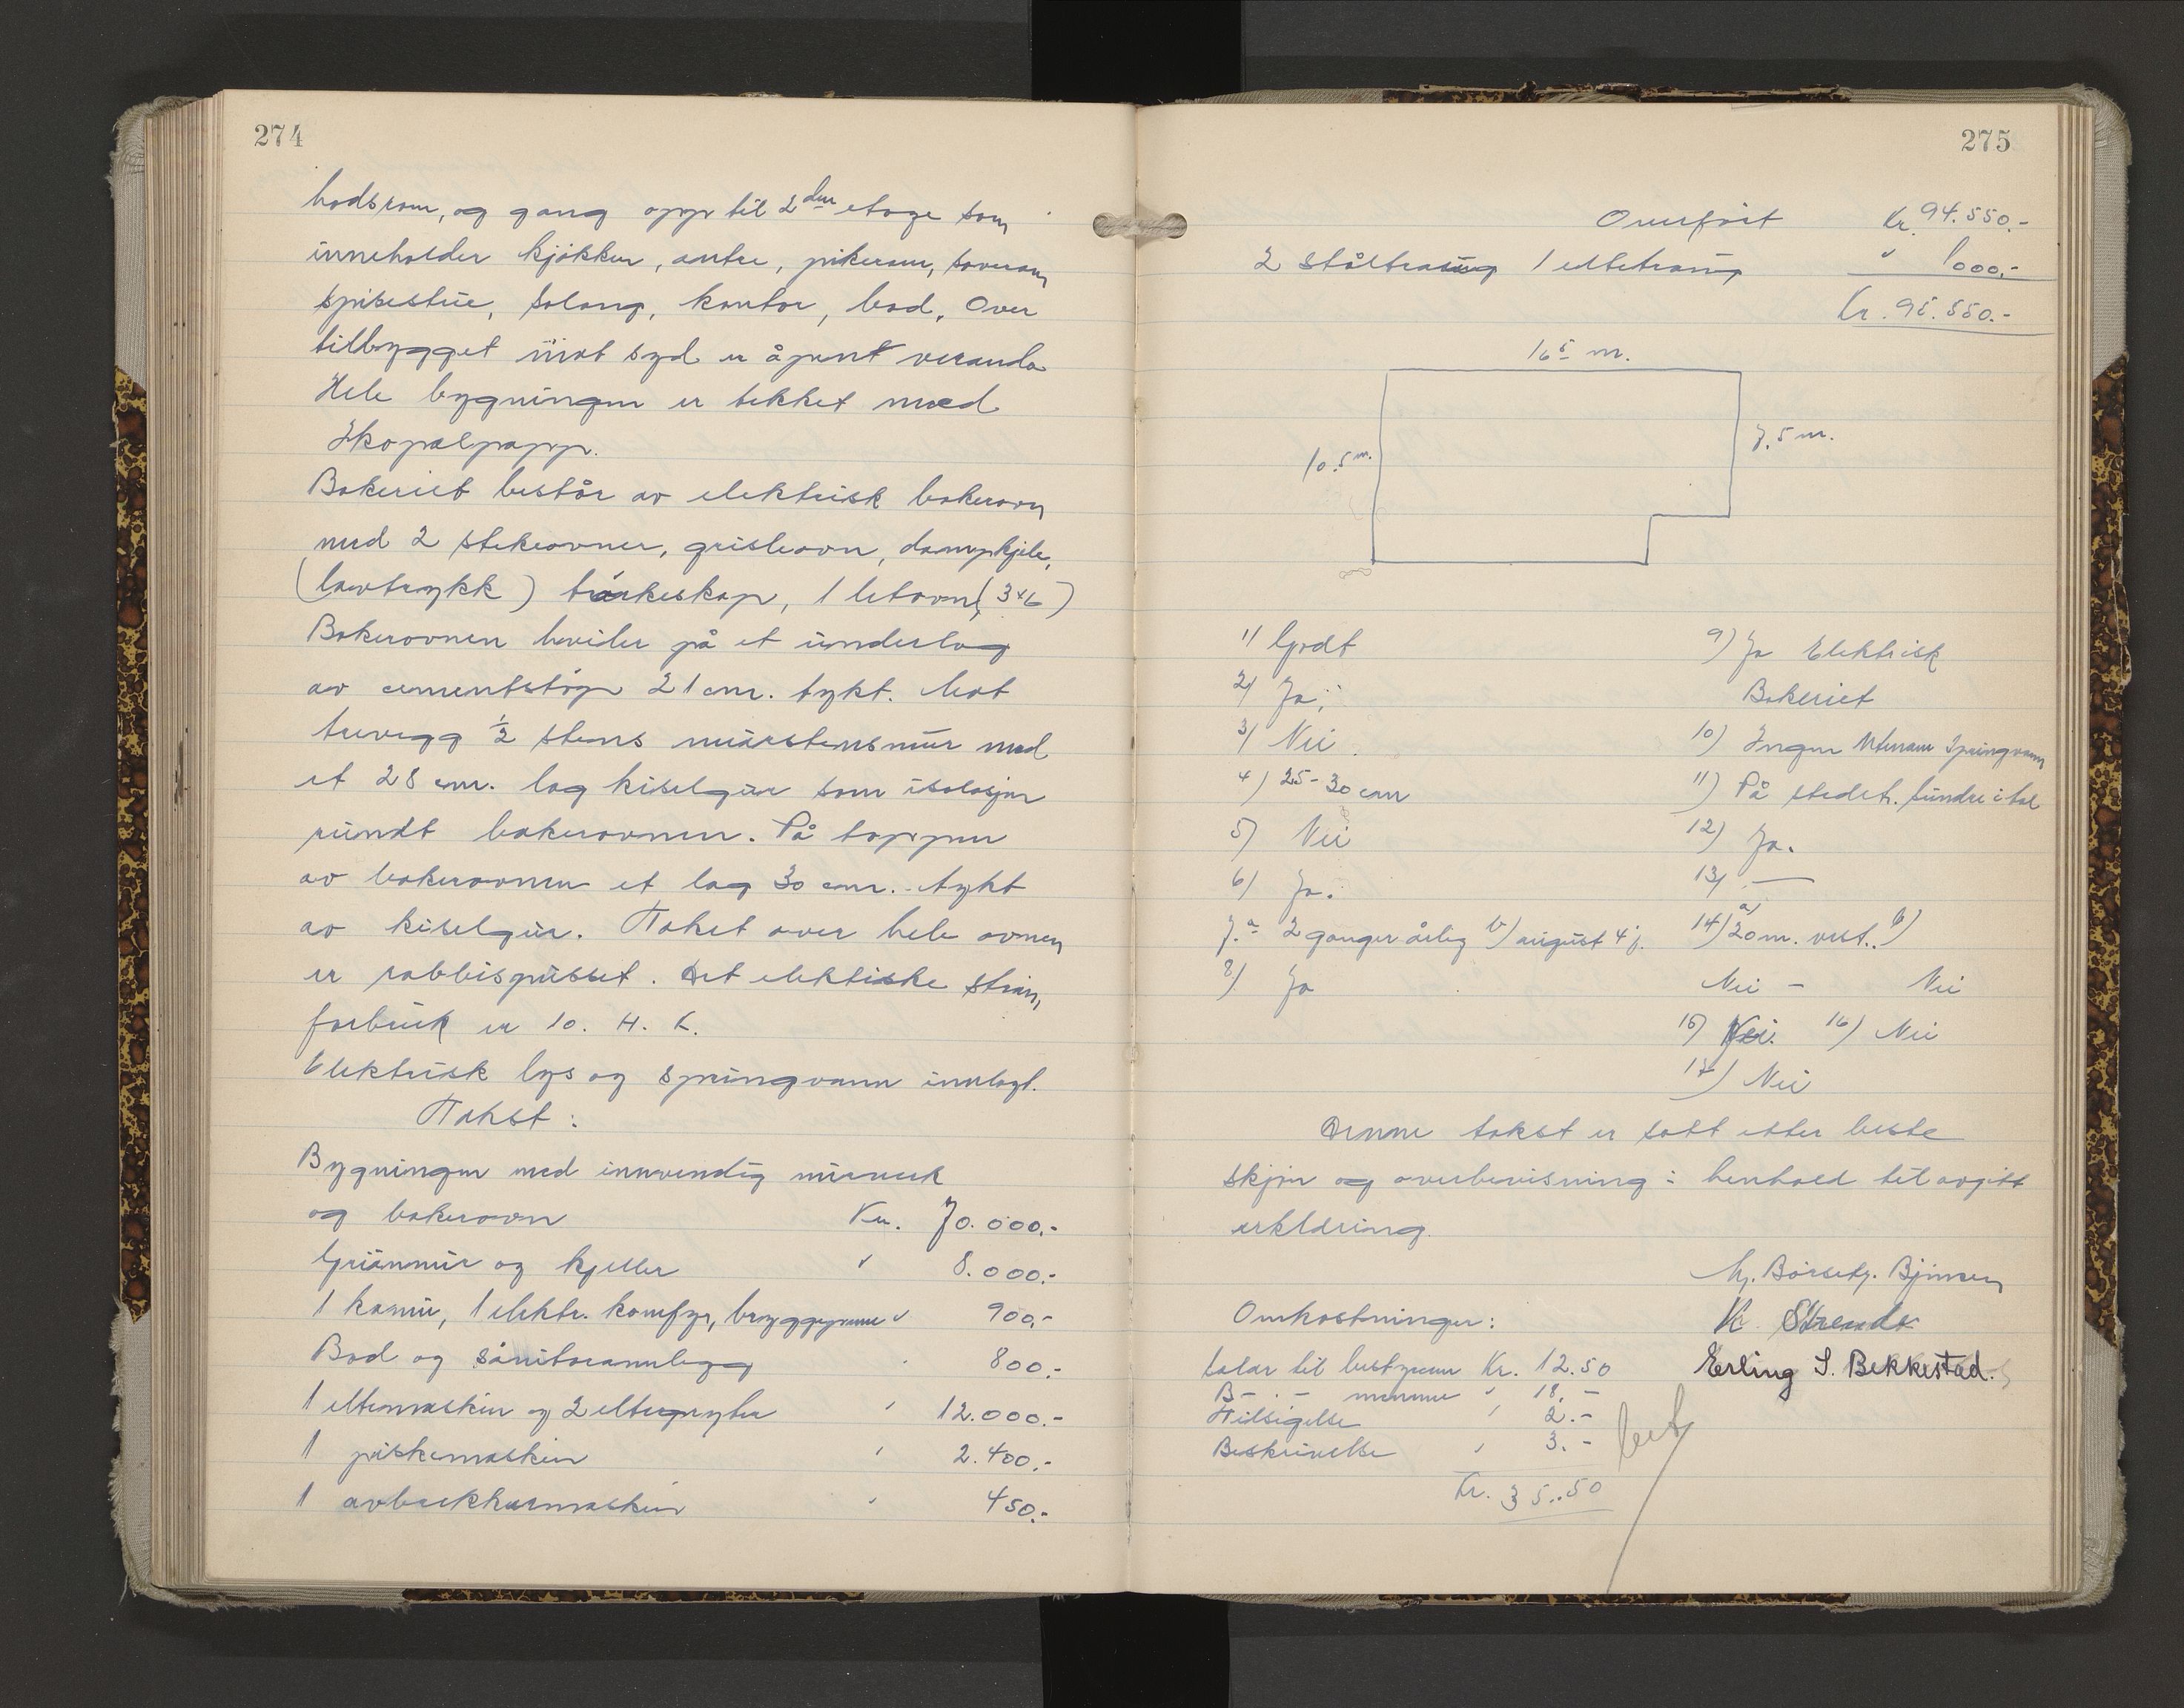 274
badsrom, og gang opp til 2den etage som
inneholder kjøkken, antre, pikerom, soverom
spisestue, salong, kontor, bad. Over
tilbygget mot syd er åpent veranda
Hele bygningen er tekket med
Ikopalpapp.
Bakeriet består av elektrisk bakerovn
med 2 stekeovner, grisleovn, dampkjele,
(lavtrykk) tørkeskap, 1 letovn (3x6)
Bakerovnen hviler på et underlag
av cementstøp 21 cm. tykt. Mot
trevegg ½ stens murstensmur med
et 28 cm. lag kiselgur som isolasjon
rundt bakerovnen. På toppen
av bakerovnen et lag 30 cm. tykt
av kiselgur. Taket over hele ovnen
er rabbispusset. Det elektriske strøm,
forbruk er 10. H. K.
Elektrisk lys og springvann innlagt.
Takst:
Bygningen med innvendig murverk
og bakerovn Kr. 70.000.-
Grunnmur og kjeller " 8.000.-
1 kamin, 1 elektr. komfyr, bryggepanne " 900.-
Bad og sanitæranlegg " 800.-
1 eltemaskin og 2 eltegryter " 12.000.-
1 piskemaskin " 2.400.-
1 avbrekkermaskin " 450.-
275
Overført Kr. 94.550.-
2 ståltraug 1 eltetraug " 1000.-
Kr. 95.550.-
16⁵ m.
7.5 m.
10.5 m.
1) Godt
2) Ja.
3) Nei
4) 25-30 cm
5) Nei
6) Ja.
7.a 2 ganger årlig b) august 47.
8) Ja
9) Ja Elektrisk
Bakeriet
10) Ingen Utenom Springvann
11) På stedet. hundre i tal
12) Ja.
13) —
14) a) 20 m. vest. b)
Nei - Nei
15) Nei. 16) Nei
17) Nei
Denne takst er satt etter beste
skjøn og overbevisning i henhold til avgitt
erklæring.
Omkostninger:
Salær til bestyreren Kr. 12.50
B- . - mennene " 18.-
Tilsigelse " 2.-
Beskrivelse " 3.-
Kr. 35.50
bet
K. Strands
Erling S. Bekkestad.